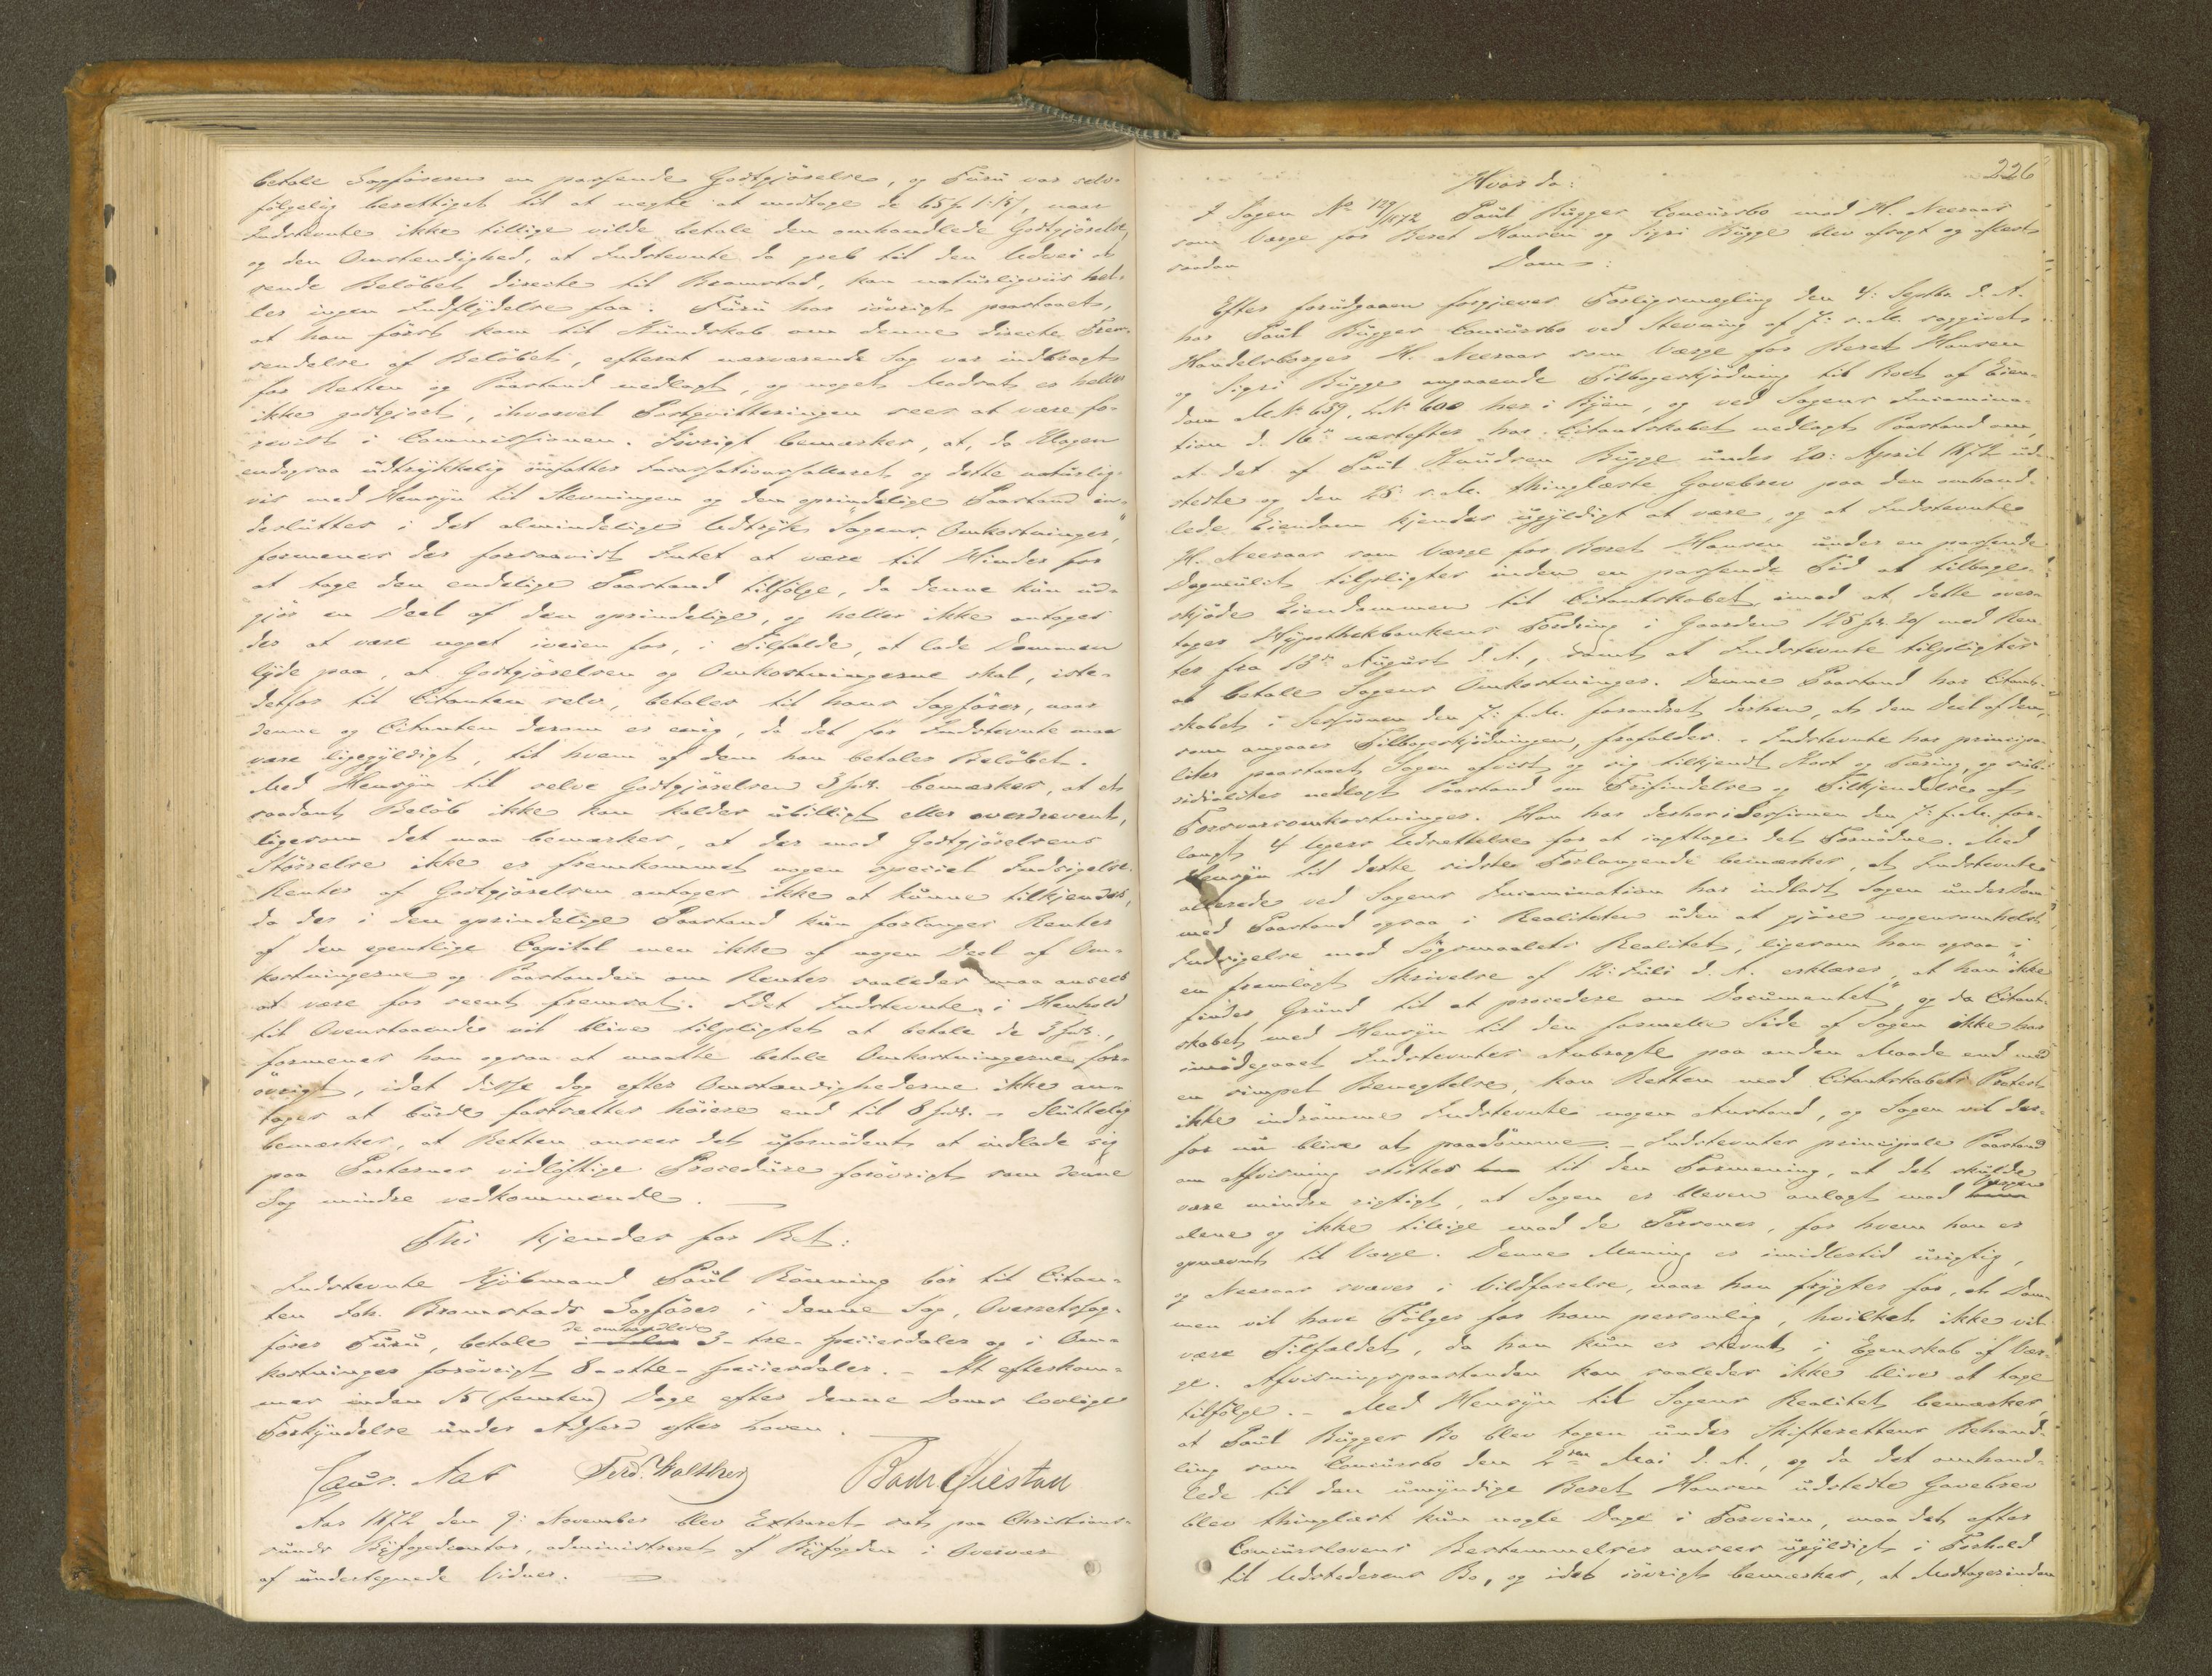 betale Sagføreren en passende Godtgjørelse, og Furu var selv-
følgelig berettiget til at negte at modtage de 65 sp 1:15/, naar
Indstevnte ikke tillige vilde betale den omhandlede Godtgjørelse,
og den Omstændighed, at Indstevnte da greb til den Udvei at
sende Beløbet directe til Bramstad, kan naturligviis hel-
ler ingen Indflydelse faa. Furu har iøvrigt paastaaet,
at han først kom til Kundskab om denne directe Frem-
sendelse af Beløbet, efterat nærværende Sag var indbragt
for Retten og Paastand nedlagt, og noget Modsat er heller
ikke godtgjort, ihvorvel Postqvitteringen sees at være fo-
revist i Commissionen. Iøvrigt bemærkes, at, da Klagen
endogsaa udtrykkelig omfatter Incassationssallairet, og dette naturlig-
vis med Hensyn til Stevningen og den oprindelige Paastand in-
desluttes i det almindelige Udtryk "Sagens Omkostninger,"
formenes der forsaavidt Intet at være til Hinder for
at tage den endelige Paastand tilfølge, da denne kun ud-
gjør en Deel af den oprindelige, og heller ikke antages
der at være noget iveien for, i Tilfælde, at lade Dommen
lyde paa, at Godtgjørelsen og Omkostningerne skal, iste-
detfor til Citanten selv, betales til hans Sagfører, naar
denne og Citanten derom er enig, da det for Indstevnte maa
være ligegyldigt, til hvem af dem han betaler Beløbet.
Med Hensyn til selve Godtgjørelsen 3 Spd. bemærkes, at et
saadant Beløb ikke kan kaldes ubilligt eller overdrevent,
ligesom det maa bemærkes, at der mod Godtgjørelsens
Størrelse ikke er fremkommet nogen speciel Indsigelse.
Renter af Godtgjørelsen antages ikke at kunne tilkjendes,
da der i den oprindelige Paastand kun forlanges Renter
af den egentlige Capital men ikke af nogen Deel af Om-
kostningerne og Paastanden om Renter saaledes maa ansees
at være for seent fremsat. Idet Indstevnte i Henhold
til Ovenstaaende vil blive tilpligtet at betale de 3 Spd.,
formenes han ogsaa at maatte betale Omkostningerne for-
øvrigt, idet disse dog efter Omstændighederne ikke an-
tages at burde fastsættes høiere end til 8 Spd. – Sluttelig
bemærkes, at Retten anseer det ufornødent at indlade sig
paa Parternes vidløftige Procedure forøvrigt som denne
Sag mindre vedkommende.
Thi kjendes for Ret:
Indstevnte Kjøbmand Paul Rønning bør til Citan-
ten Joh. Bramstads Sagfører i denne Sag, Overretssag-
de omhandlede
fører Furu, betale 3 – tre – Speciesdaler og i Om-
kostninger forøvrigt 8 – otte – Speciesdaler. – At efterkom-
mes inden 15 (femten) Dage efter denne Doms lovlige
Forkyndelse under Adfærd efter Loven.
Ferd. Walther
Aar 1872 den 9: November blev Extraret sat paa Christians-
sunds Byfogedcontor, administreret af Byfogden i Overvær
af undertegnede Vidner.
226
Hvorda:
I Sagen No 129/1872 Paul Bugges Concursbo mod H. Neeraar
som Værge for Beret Hansen og Sigri Bugge blev afsagt og aflæst
saadan Dom:
Efter forudgaaen forgjæves Forligsmægling den 4: Septbr d. A.
har Paul Bugges Concursbo ved Stevning af 7: s. M. saggivet
Handelsborger H. Neeraar som Værge for Beret Hansen
og Sigri Bugge angaaende Tilbageskjødning til Boet af Eien-
dom M.No 659, L.No 600 her i Byen, og ved Sagens Incamina-
tion d. 16de næstefter har Citantskabet nedlagt Paastand om,
at det af Paul Knudsen Bugge under 20: April 1872 ud-
stedte og den 25 s. M. thinglæste Gavebrev paa den omhand-
lede Eiendom kjendes ugyldigt at være, og at Indstevnte
H. Neeraar som Værge for Beret Hansen under en passende
Dagmulct tilpligtes inden en passende Tid at tilbage-
skjøde Eiendommen til Citantskabet imod at dette over-
tager Hypothekbankens Fordring i Gaarden 125 Spd. 20/ med Ren-
ter fra 13de August d. A., samt at Indstevnte tilpligtes
at betale Sagens Omkostninger. Denne Paastand har Citant-
skabet i Sessionen den 7: f. M. forandret derhen, at den Deel af den,
som angaaer Tilbageskjødningen, frafaldes. – Indstevnte har principa-
liter paastaaet Sagen afvist og sig tilkjendt Kost og Tæring, og sub-
sidialiter nedlagt Paastand om Frifindelse og Tilkjendelse af
Forsvarsomkostninger. Han har derhos i Sessionen den 7: f. M. for-
langt 4 Ugers Udsættelse for at iagttage det Fornødne. Med
Hensyn til dette sidste Forlangende bemærkes, at Indstevnte
allerede ved Sagens Incamination har indladt Sagen under Dom
med Paastand ogsaa i Realiteten uden at gjøre nogensomhelst
Indsigelse mod Søgsmaalets Realitet, ligesom han ogsaa i
en fremlagt Skrivelse af 12: Juli d. A. erklærer, at han "ikke
finder Grund til at procedere om Documentet", og da Citant-
skabet med Hensyn til den formelle Side af Sagen ikke har
imødegaaet Indstevntes Anbragte paa anden Maade end med
en simpel Benegtelse, kan Retten mod Citantskabets Protest
ikke indrømme Indstevnte nogen Anstand, og Sagen vil der-
for nu blive at paadømme. – Indstevntes principale Paastand
om Afvisning støttes til den Formening, at det skulde
være mindre rigtigt, at Sagen er bleven anlagt mod Værgen
alene og ikke tillige mod de Personer, for hvem han er
opnævnt til Værge. Denne Mening er imidlertid urigtig,
og Neeraar svæver i Vildfarelse, naar han frygter for, at Dom-
men vil have Følger for ham personlig, hvilket ikke vil
være Tilfældet, da han kun er stevnt i Egenskab af Vær-
ge. Afvisningspaastanden kan saaledes ikke blive at tage
tilfølge. – Med Hensyn til Sagens Realitet bemærkes,
at Paul Bugges Bo blev tagen under Skifterettens Behand-
ling som Concursbo den 2den Mai d. A., og da det omhand-
lede til den umyndige Beret Hansen udstedte Gavebrev
blev thinglæst kun nogle Dage i Forveien, maa det efter
Concurslovens Bestemmelser ansees ugyldigt i Forhold
til Udstederens Bo, og idet iøvrigt bemærkes, at Modtagerinden